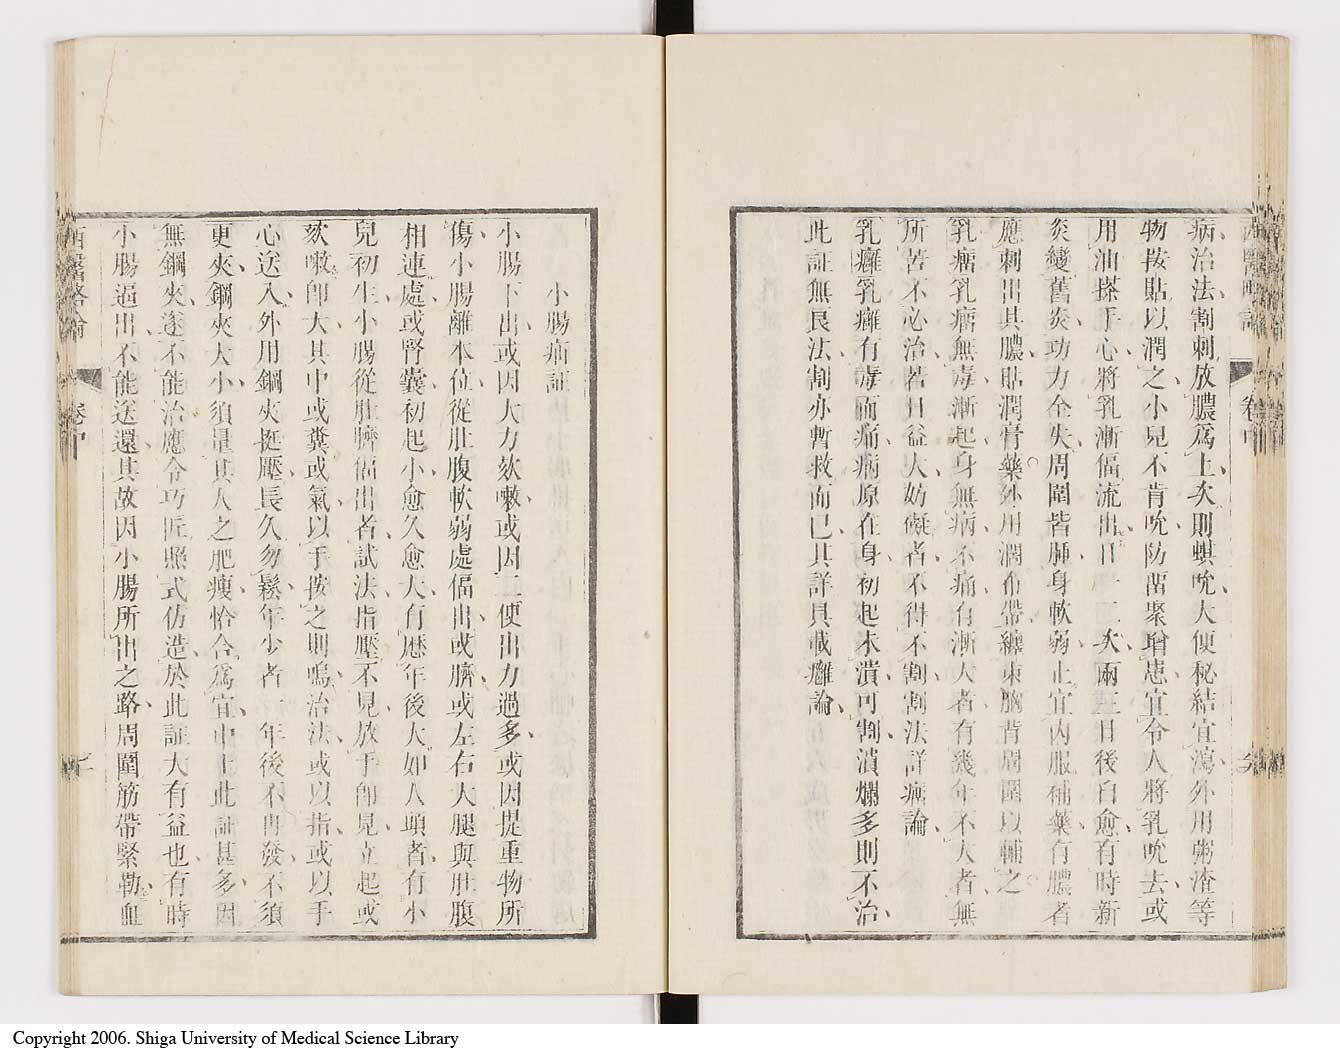 病治法割刺放膿爲上、次則蜞吮、大便秘結宜瀉、外用粥渣等
物按貼以潤之、小兒不肯吮、防畱聚增患、宜令人將乳吮去、或
用油搽手心、將乳漸偪流出、日一二次、兩三日後自愈、有時新
炎變舊炎、功力全失、周圍皆腫、身軟弱、止宜內服補藥、有膿者
應刺出其膿、貼潤膏藥、外用潤布帶、纏束胸背周圍以輔之
乳瘤 乳瘤無毒、漸起、身無病、不痛、自漸大者、有幾年不大者、無
所苦不必治、若日益大、妨礙者、不得不割、割法詳瘤論、
乳癰 乳癰有毒而痛、病原在身、初起未潰可割、潰爛多則不治、
此証無良法、割亦暫救而已、其詳具載癰論、
西醫略論
卷中
小腸疝証
小腸下出、或因大力欬嗽、或因二便出力過多、或因提重物所
傷、小腸離本位、從肚腹軟弱處偪出、或臍、或左右大腿與肚腹
相連處、或腎囊、初起小、愈久愈大、有歷年後大如人頭者、有小
兒初生、小腸從肚臍偪出者、試法、指壓不見、放手即見、立起或
欬嗽即大、其中或糞或氣、以手按之則鳴、治法、或以指或以手
心送入、外用鋼夾挺壓、長久勿鬆、年少者一年後不再發、不須
更夾、鋼夾大小、須量其人之肥瘦、恰合爲宜、中土此証甚多、因
無鋼夾、遂不能治、應令巧匠照式仿造、於此証大有益也、有時
小腸逼出、不能送還、其故因小腸所出之路、周圍筋帶緊勒、血
西醫略論
卷中